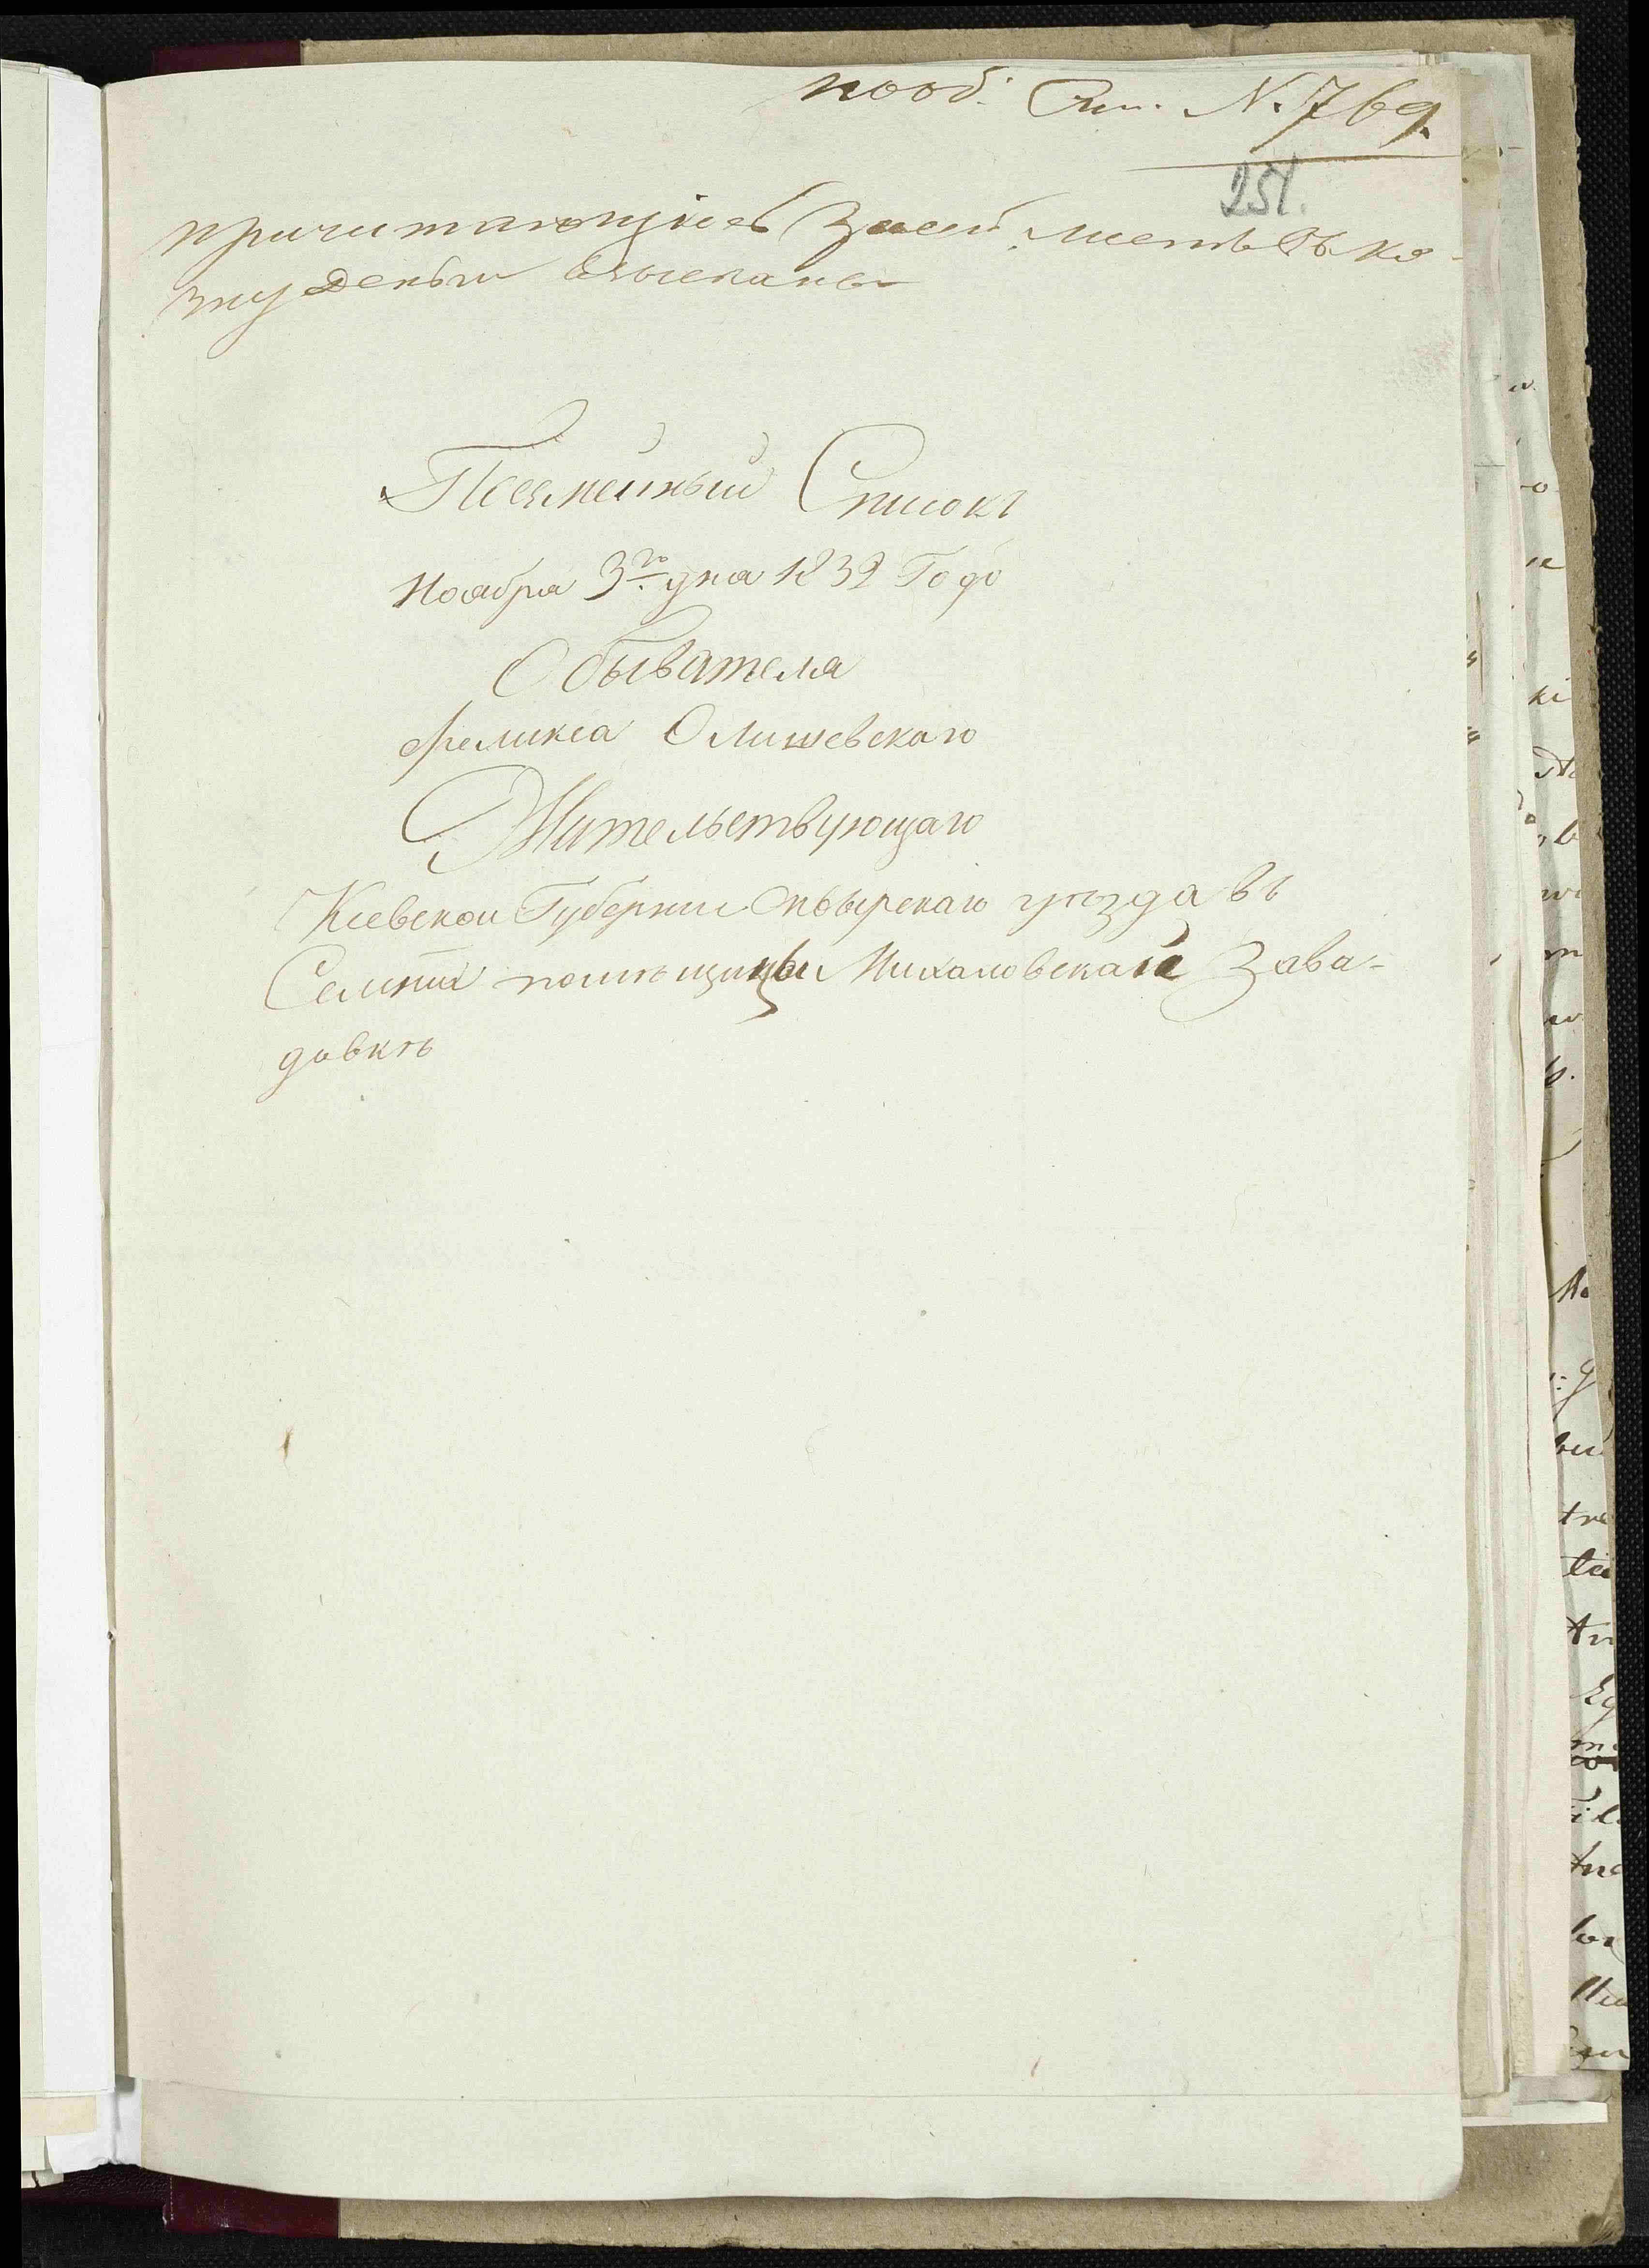 пооб: Рег. N. 769.
251.
причитающіесь за сей листъ въ ка-
зну деньги взысканы
Посемейный Списокъ
Ноября 3го дня 1839 Годо
Обывателя
Феликса Олишевскаго
Жительствующаго
Кіевской Губерніи Сквырскаго уѣзда въ
Селѣніи помѣщицы Михаловскаіе Зава-
довкѣ